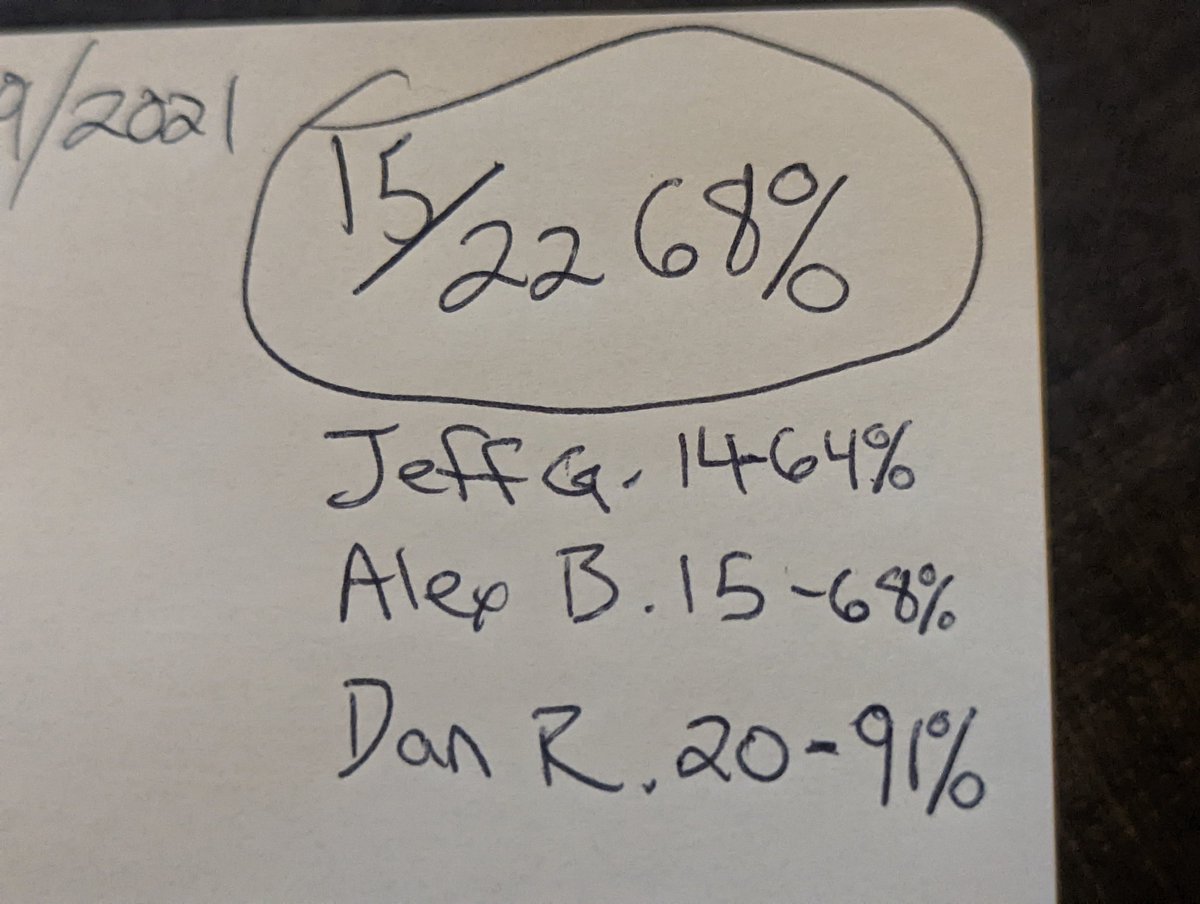 9/2021
15/22 68%
Jeff G. 14-64%
Alex B. 15-68%
Dan R. 20-91%